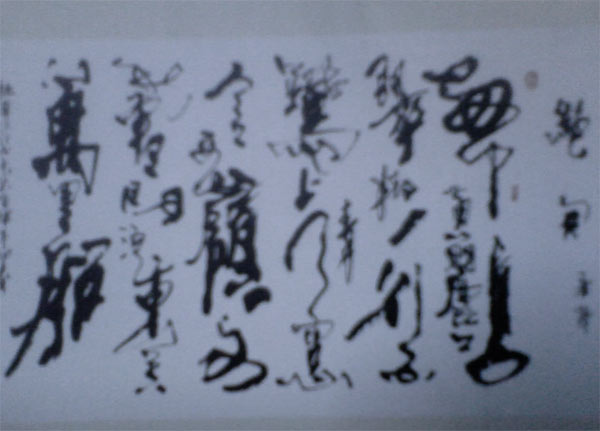 絕句
兩个黃鸝鳴
翠柳一行白
鷺上青天窗
含西嶺千秋
雪門泊東吳
萬里船